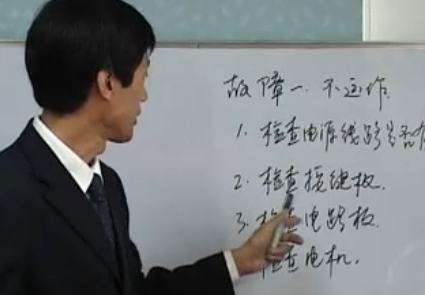 故障一.不运作.
1.检查电源线路是否有
2.检查接继板.
3.检查电路板.
检查电机.